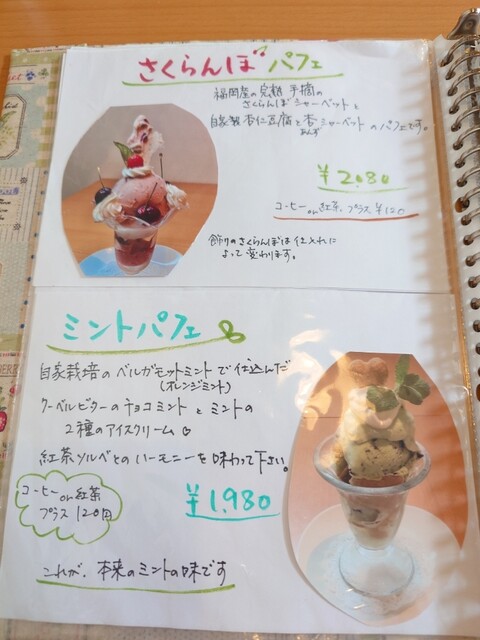 さくらんぼパフェ
福岡産の完熟 手摘の
さくらんぼシャーベットと
自家製杏仁豆腐と杏シャーベットのパフェです。
あんず
¥2,080
コーヒーor紅茶 プラス ¥120
飾りのさくらんぼは仕入れに
よって変わります。
ミントパフェ
自家栽培のベルガモットミントで仕込んだ
(オレンジミント)
クーベルビターのチョコミントとミントの
2種のアイスクリーム
紅茶ソルベとのハーモニーを味わって下さい。
コーヒーor紅茶
プラス 120円
¥1,980
これが、本来のミントの味です